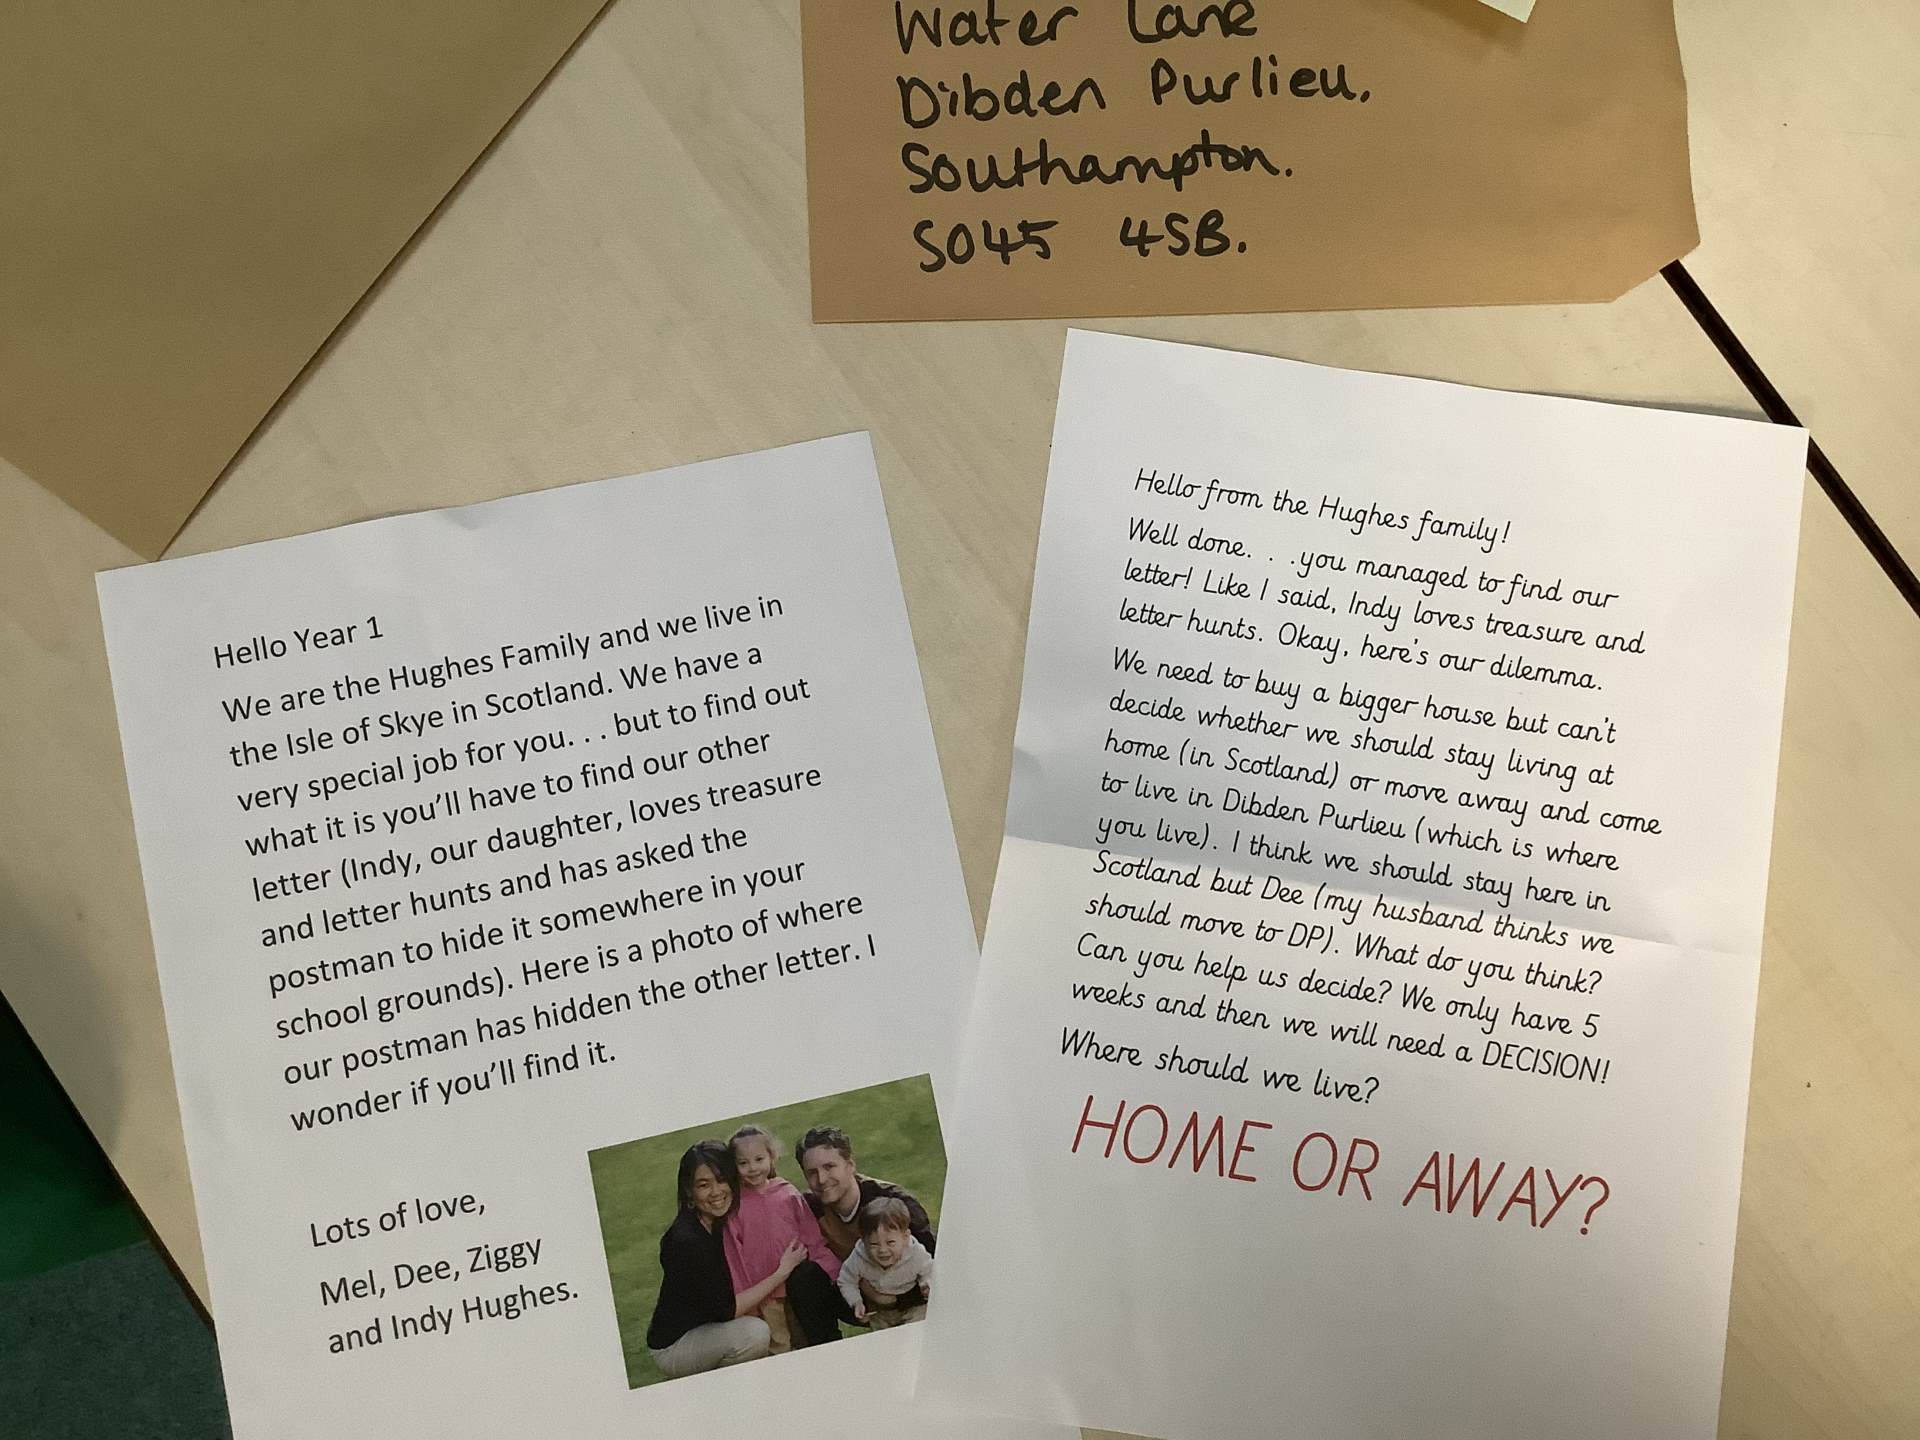 Water Lane
Dibden Purlieu,
Southampton.
SO45 4SB.
Hello Year 1
We are the Hughes Family and we live in
the Isle of Skye in Scotland. We have a
very special job for you. . . but to find out
what it is you'll have to find our other
letter (Indy, our daughter, loves treasure
and letter hunts and has asked the
postman to hide it somewhere in your
school grounds). Here is a photo of where
our postman has hidden the other letter. I
wonder if you'll find it.
Lots of love,
Mel, Dee, Ziggy
and Indy Hughes.
Hello from the Hughes family!
Well done. . .you managed to find our
letter! Like I said, Indy loves treasure and
letter hunts. Okay, here's our dilemma.
We need to buy a bigger house but can't
decide whether we should stay living at
home (in Scotland) or move away and come
to live in Dibden Purlieu (which is where
you live). I think we should stay here in
Scotland but Dee (my husband thinks we
should move to DP). What do you think?
Can you help us decide? We only have 5
weeks and then we will need a DECISION!
Where should we live?
HOME OR AWAY?